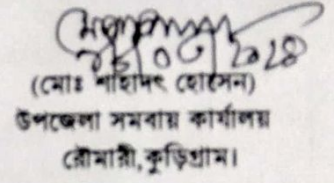 (মোঃ শাহাদৎ হোসেন)
উপজেলা সমবায় কার্যালয়
রৌমারী, কুড়িগ্রাম।